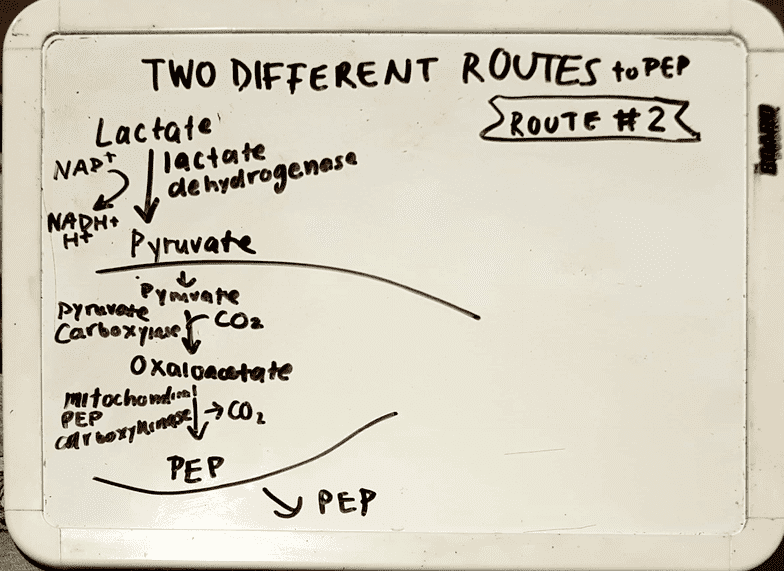 TWO DIFFERENT ROUTES to PEP
ROUTE #2
Lactate
NAD+
lactate
dehydrogenase
NADH+
H+
Pyruvate
Pyruvate
Pyruvate
Carboxylase
CO2
Oxaloacetate
mitochondrial
PEP
carboxykinase
→ CO2
PEP
↘ PEP